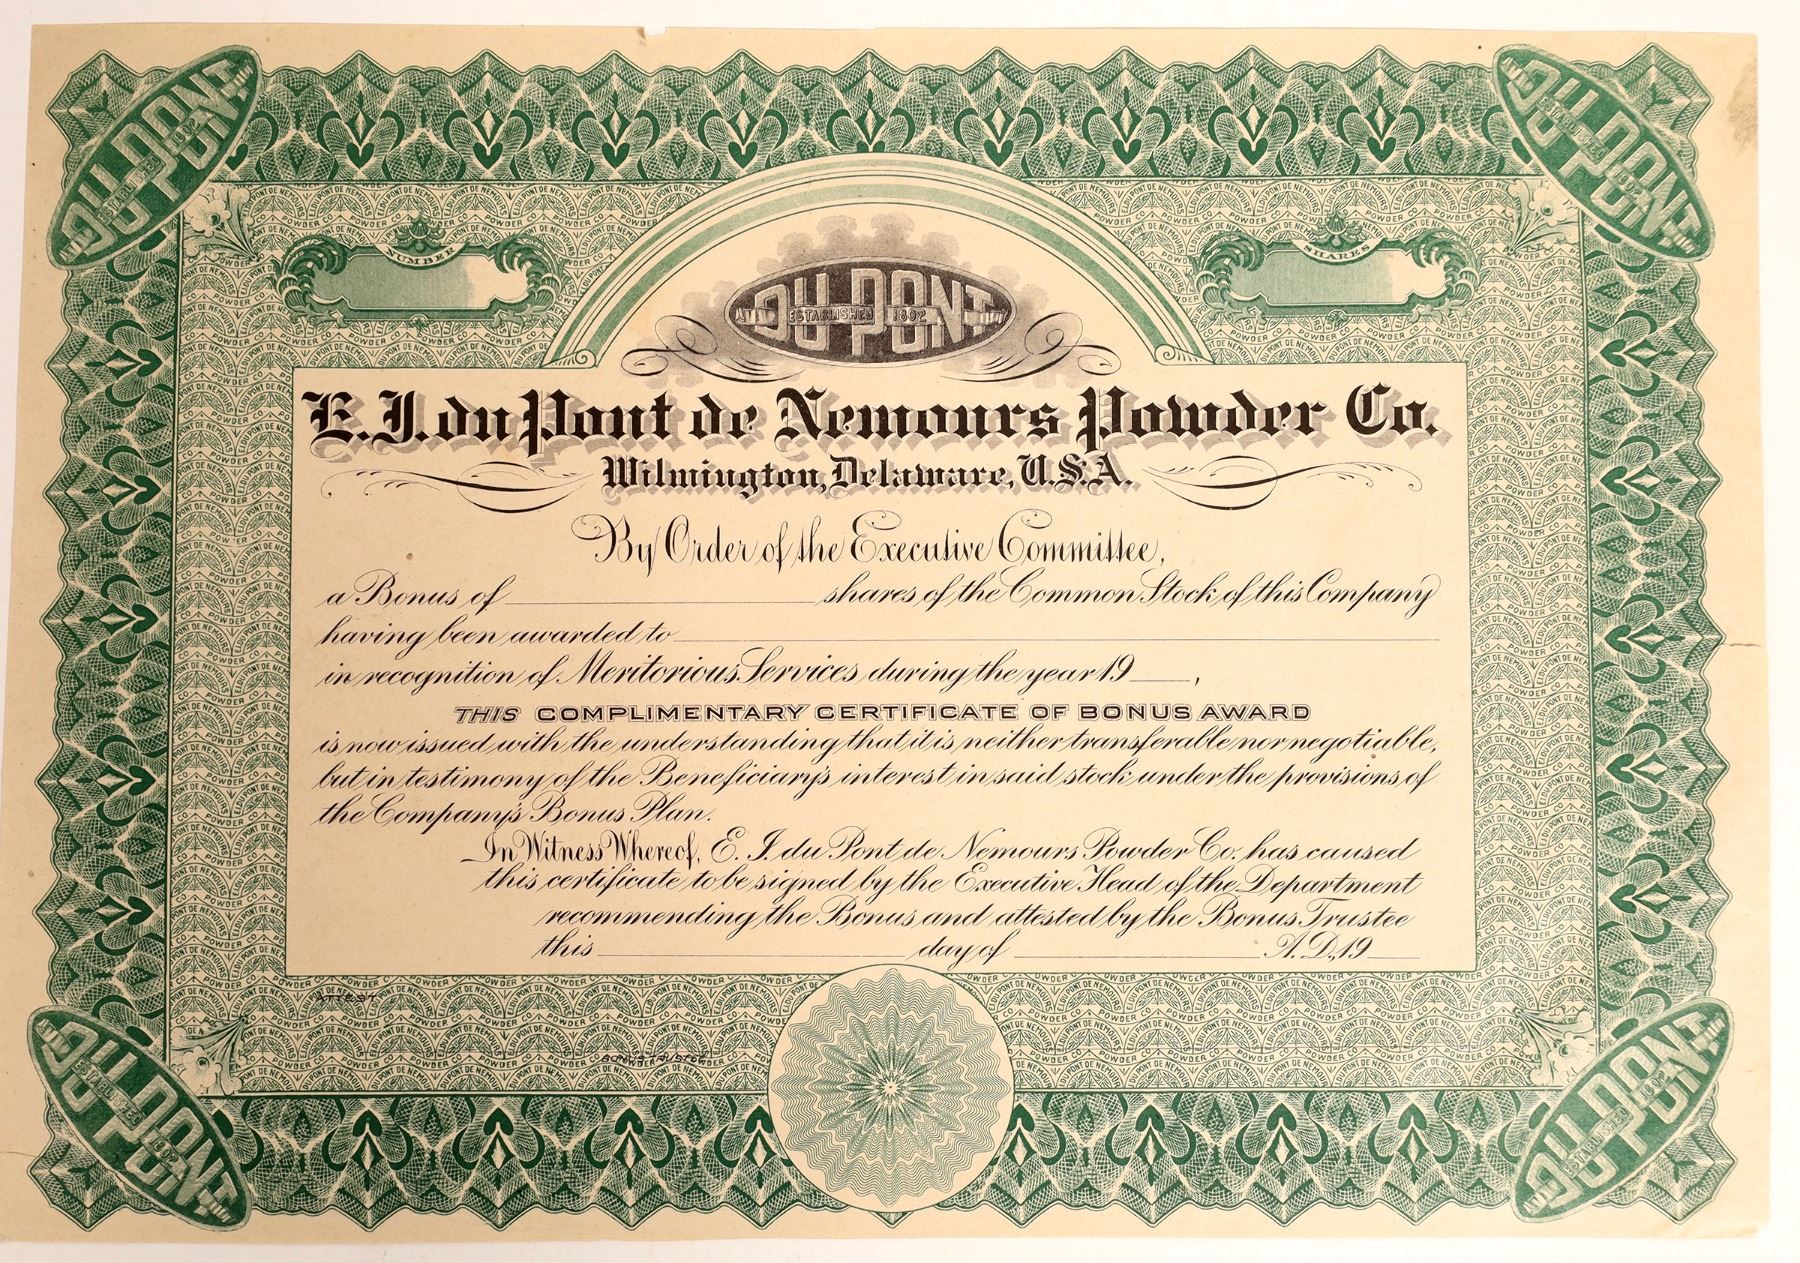 DU PONT
ESTABLISHED 1802
DU PONT
ESTABLISHED 1802
NUMBER
SHARES
DU PONT
ESTABLISHED 1802
E. I. du Pont de Nemours Powder Co.
Wilmington, Delaware, U.S.A.
By Order of the Executive Committee,
a Bonus of ____ shares of the Common Stock of this Company
having been awarded to ____
in recognition of Meritorious Services during the year 19__,
THIS COMPLIMENTARY CERTIFICATE OF BONUS AWARD
is now issued with the understanding that it is neither transferable nor negotiable,
but in testimony of the Beneficiary's interest in said stock under the provisions of
the Company's Bonus Plan.
In Witness Whereof, E. I. du Pont de Nemours Powder Co. has caused
this certificate to be signed by the Executive Head of the Department
recommending the Bonus and attested by the Bonus Trustee
this ____ day of ____ A.D. 19__
ATTEST
BONUS TRUSTEE
DU PONT
ESTABLISHED 1802
DU PONT
ESTABLISHED 1802